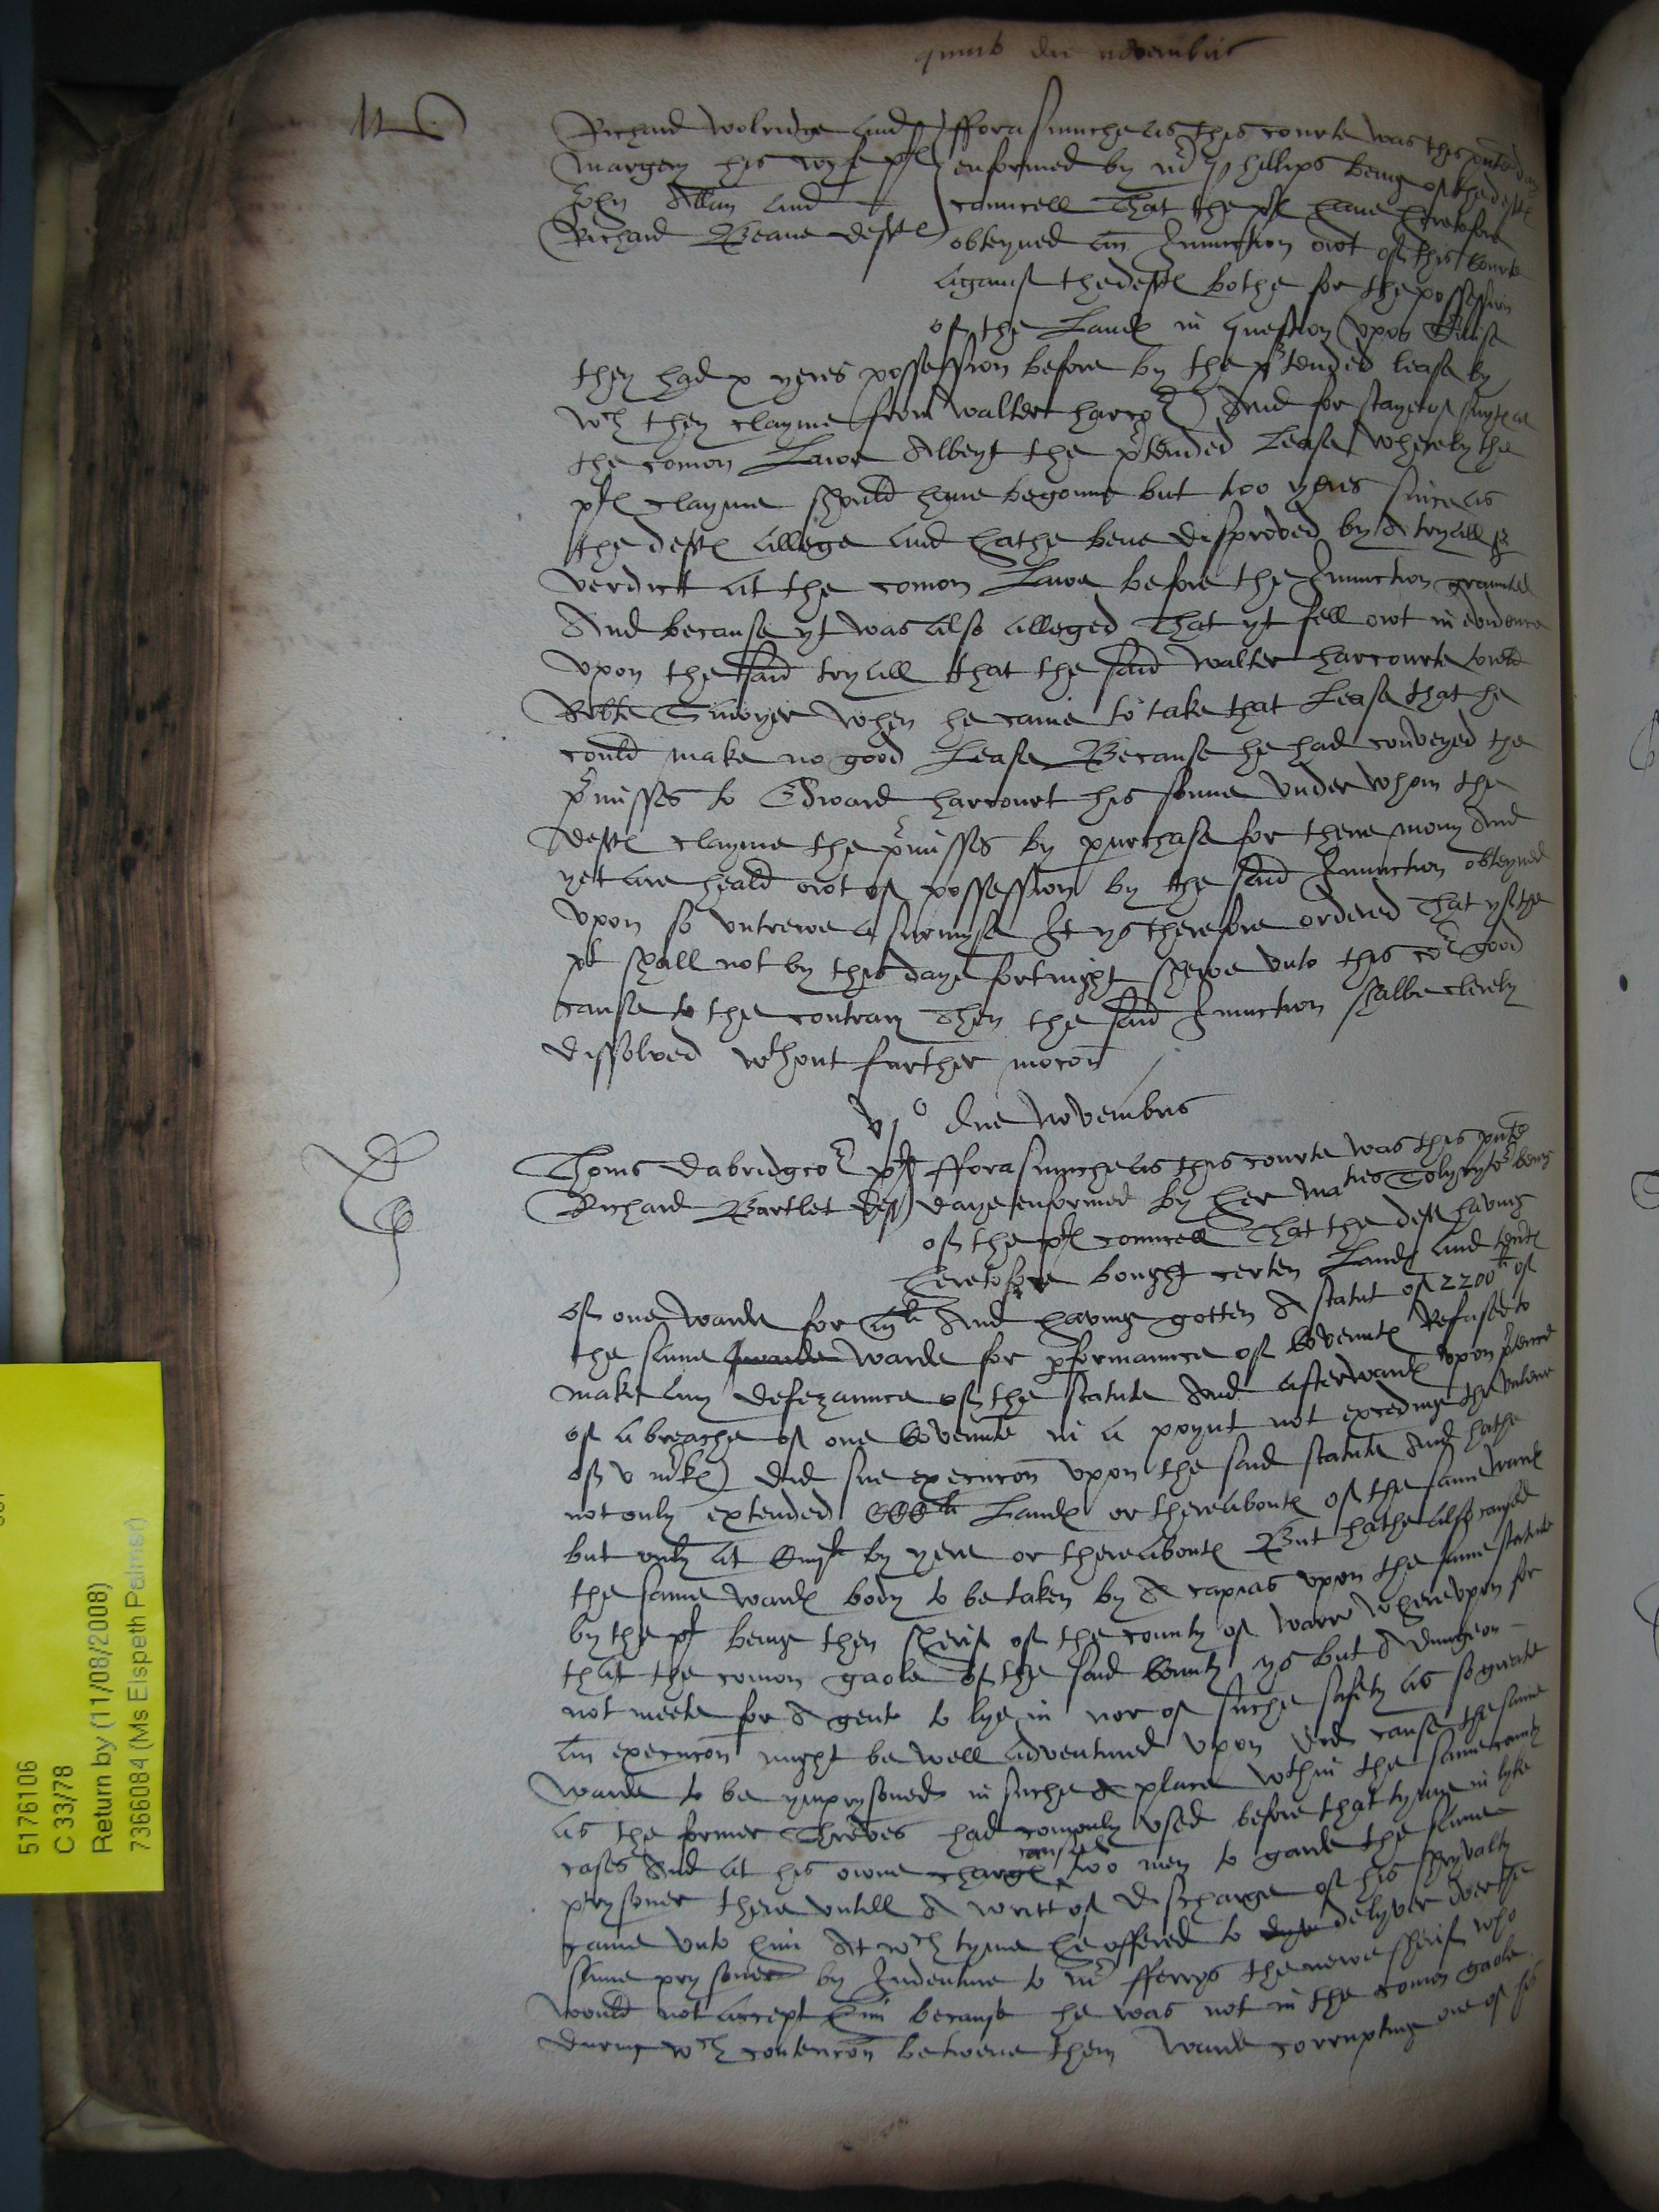 quinto die novembris
Richard Wolridge and
Margery his wyfe pltes
John Allan and
Richard Beane deftes
fforasmuche as this courte was this pnte day
enformed by mr Phillips being of the deftes
councell That the pltes have heretofore
obteyned an Iniunction owt of this Courte
against the deftes bothe for the possession
of the Landes in question upon
they had x yeres possession before by the ptended lease by
wch they clayme from Walter harcot And for staye of suytes at
the comon Lawe Albeyt the ptended Lease whereby the
pltes clayme should have begonne but too yeres since as
the deftes allege and hathe bene disproved by A tryall &
verdict at the comon Lawe before the Iniunction graunted
And because yt was also alleged That yt fell owt in evidence
upon the said tryall that the said Walter harcourte tould
Robte when he came to take that Lease that he
could make no good Lease Because he had conveyed the
pmisses to Edward harcourt his sonne under whom the
deftes clayme the pmisses by purchase for there mony And
yet are heald owt of possession by the said Iniunction obteyned
upon so untrewe a surmyse It ys therefore ordered That yf the
plt shall not by this daye fortnight shewe unto this cot good
cause to the contrary Then the said Iniunction shalbe clerely
dissolved wthout further mocon
vjo die Novembris
Thoms dabridgcot plt
Richard Bartlet deft
fforasmuche as this courte was this pnte
daye enformed by her maties Solycytor being
of the pltes councell That the deft having
heretofore bought certen Landes and tentes
of one Warde for li And having gotten A statut of 2200li of
the same Warde for pformaunce of Covenntes Refused to
make any defezaunce of the statute And afterwardes upon ptence
of a breache of one Covennte in a poynt not exceding the valewe
of v mrkes did sue execucon upon the said statute And hathe
not only extended CCCli Landes or thereaboutes of the same Wardes
but only at li by yere or thereaboutes But hathe also caused
the same Wardes body to be taken by A capias upon the same statute
by the plt being then sherif of the county of Warr Whereupon for
that the comon gaole of the said County ys but A dungeon
not meete for A gent to lye in nor of suche safety as so greate
an execucon might be well adventured upon did cause the same
Warde to be ymprysoned in suche A place wthin the same county
as the former Shreves had comonly used before that tyme in lyke
cases And at his owne charge caused too men to garde the same
prysoner there untill A writt of discharge of his shryvalty
came unto him At wch tyme he offered to delyver over the
same prysoner by Indenture to mr fferrys the newe sherif who
would not accept him because he was not in the comon gaole
during wch contencon betwene them Warde corrupting one of his
5176106
C 33/78
Return by (11/08/2008)
7366084 (Ms Elspeth Palmer)